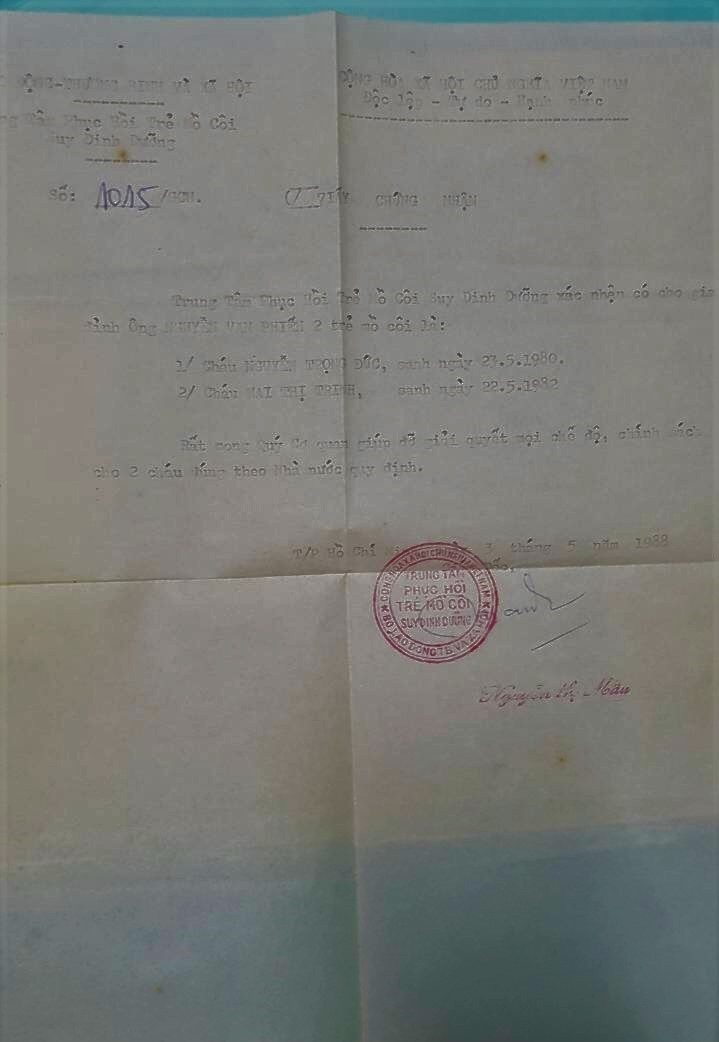 ỘNG-THƯƠNG BINH VÀ XÃ HỘI
CỘNG HÒA XÃ HỘI CHỦ NGHĨA VIỆT NAM
Độc lập - Tự do - Hạnh phúc
Tâm Phục Hồi Trẻ Mồ Côi
Suy Dinh Dưỡng
Số: 1015/GCN.
GIẤY CHỨNG NHẬN
Trung Tâm Phục Hồi Trẻ Mồ Côi Suy Dinh Dưỡng xác nhận có cho gia
đình Ông NGUYỄN VĂN PHIẾN 2 trẻ mồ côi là:
1/ Cháu NGUYỄN TRỌNG ĐỨC, sanh ngày 23.5.1980.
2/ Cháu MAI THỊ TRINH, sanh ngày 22.5.1982
Rất mong Quý Cơ quan giúp đỡ giải quyết mọi chế độ, chính sách
cho 2 cháu đúng theo Nhà nước quy định.
T/P Hồ Chí Minh 3 tháng 5 năm 1988
CỘNG HÒA XÃ HỘI CHỦ NGHĨA VIỆT NAM
TRUNG TÂM
PHỤC HỒI
TRẺ MỒ CÔI
SUY DINH DƯỠNG
BỘ LAO ĐỘNG TB VÀ XÃ HỘI
Nguyễn thị Mân